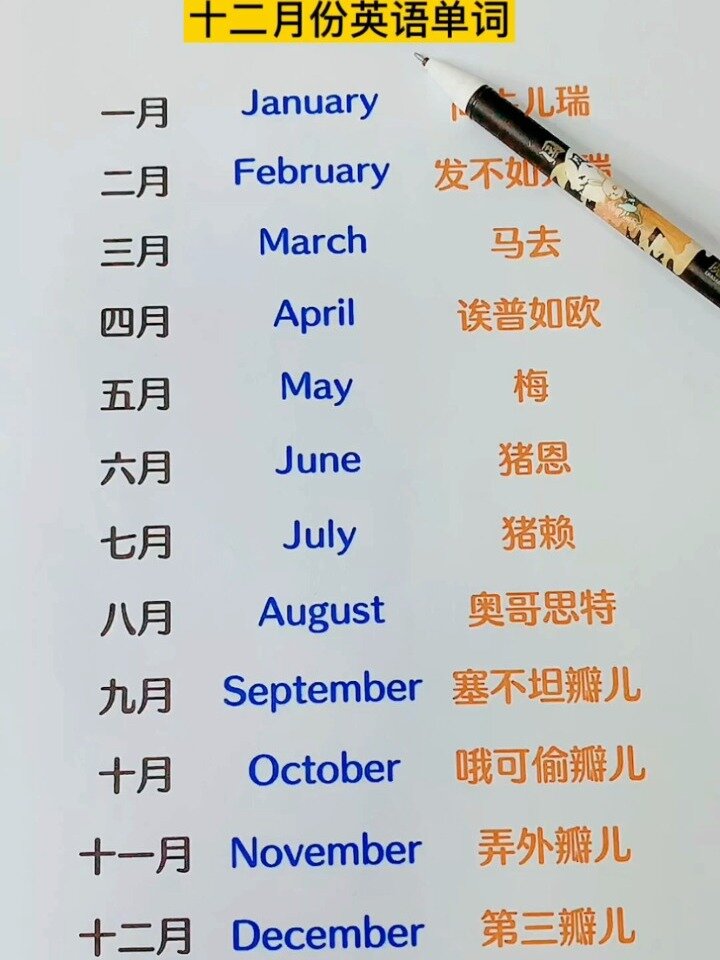 十二月份英语单词
一月 January 儿瑞
二月 February 发不如瑞
三月 March 马去
四月 April 诶普如欧
五月 May 梅
六月 June 猪恩
七月 July 猪赖
八月 August 奥哥思特
九月 September 塞不坦瓣儿
十月 October 哦可偷瓣儿
十一月 November 弄外瓣儿
十二月 December 第三瓣儿